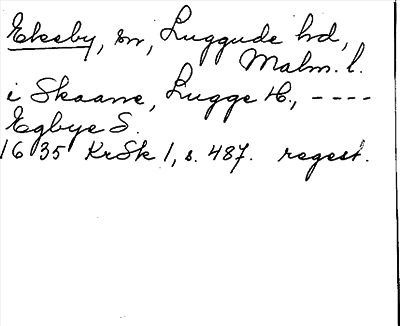 Eksby, sn, Luggude hd,
Malm. l.
i Skaane, Lugge H., ----
Egbye S.
1635 KrSk 1, s. 487. regest.